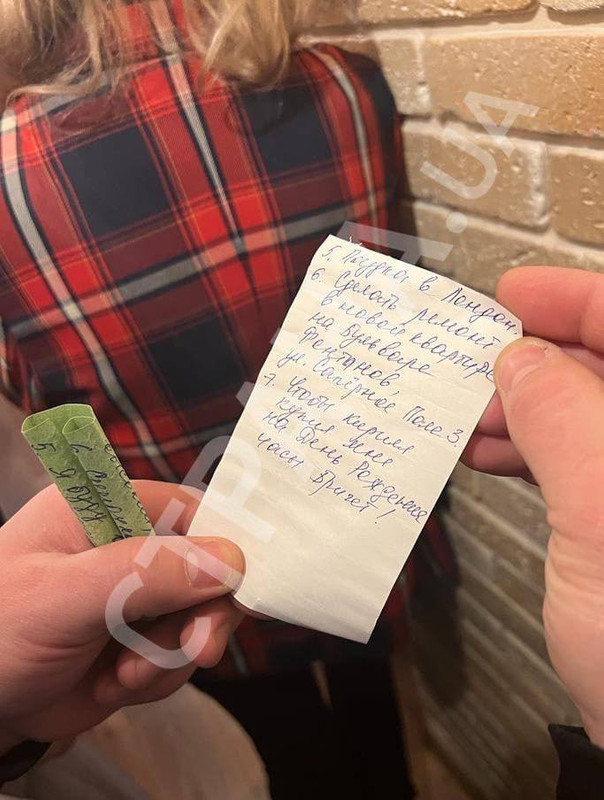 5. Поездка в Лондон.
6. Сделать ремонт
в новой квартире
на бульваре
Фонтанов,
ул. Сапёрное Поле 3.
7. Чтобы Кирилл
купил мне
на День Рождения
часы Бригет!
5. Я буду
6.
СТРАНА.UA